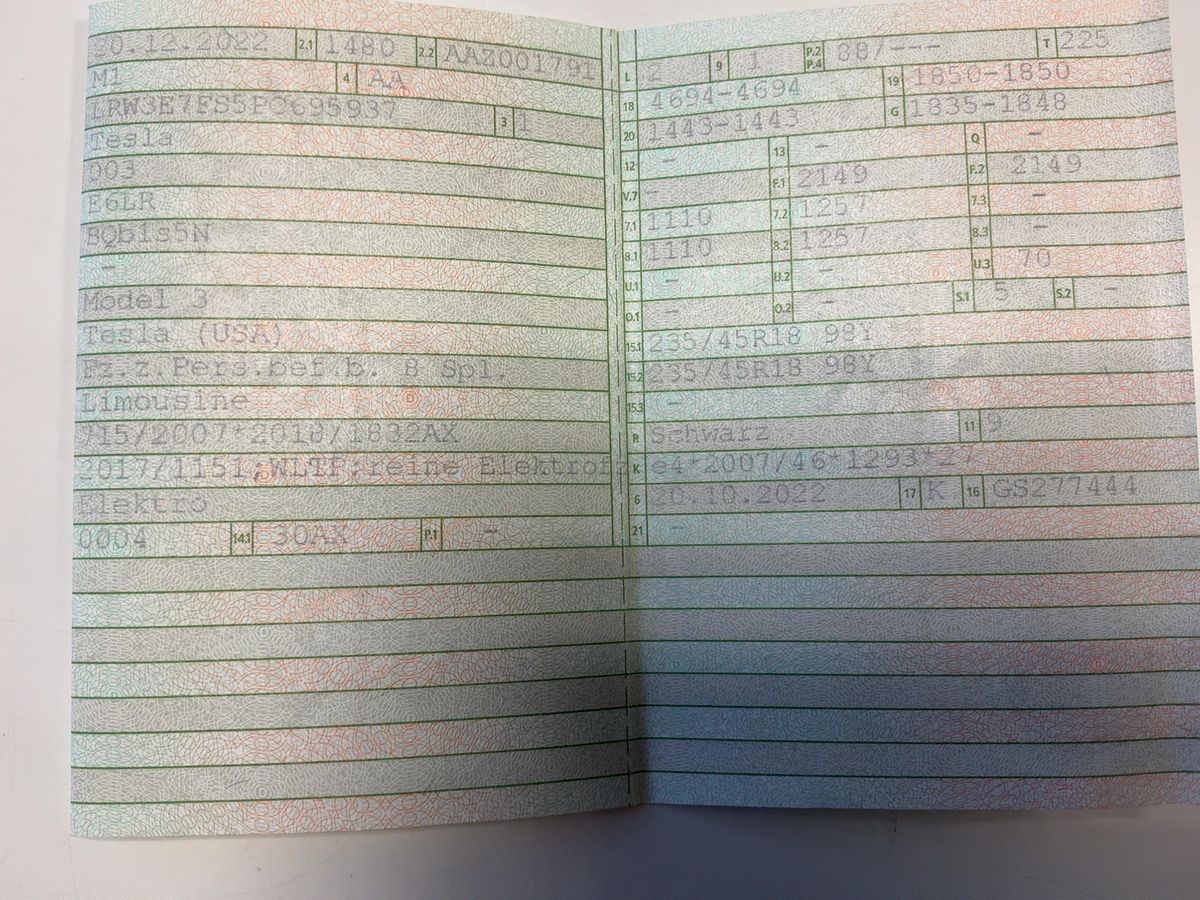 20.12.2022 2.1 1480 2.2 AAZ001791
M1 4 AA
LRW3E7FS5PC695937 3 1
Tesla
003
E6LR
BQb1s5N
-
Model 3
Tesla (USA)
Fz.z.Pers.bef.b. 8 Spl.
Limousine
715/2007*2018/1832AX
2017/1151;WLTP;reine Elektrofz
Elektro
0004 14.1 30AX P.1 -
L 2 9 1 P.2 P.4 88/--- T 225
18 4694-4694 19 1850-1850
20 1443-1443 G 1835-1848
12 - 13 - Q -
V.7 - F.1 2149 F.2 2149
7.1 1110 7.2 1257 7.3 -
8.1 1110 8.2 1257 8.3 -
U.1 - U.2 - U.3 70
O.1 - O.2 - S.1 5 S.2 -
15.1 235/45R18 98Y
15.2 235/45R18 98Y
15.3 -
R Schwarz 11 9
K e4*2007/46*1293*27
6 20.10.2022 17 K 16 GS277444
21 -